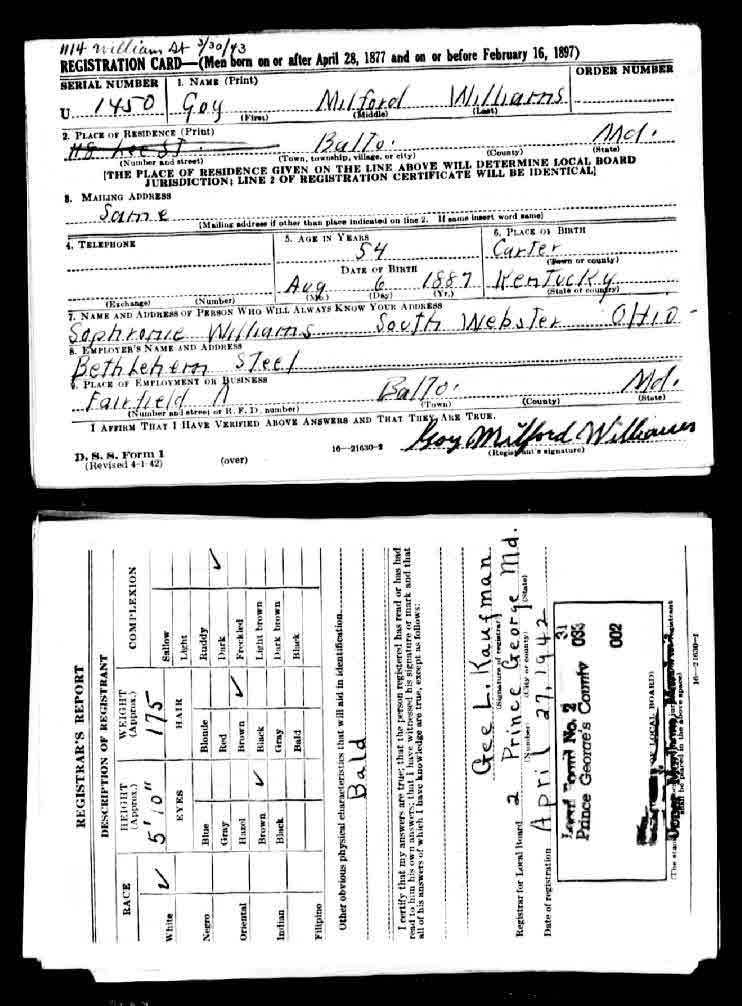 1114 William St 3/30/43
REGISTRATION CARD—(Men born on or after April 28, 1877 and on or before February 16, 1897)
SERIAL NUMBER 1. NAME (Print) ORDER NUMBER
U 1450 Goy Milford Williams
(First) (Middle) (Last)
2. PLACE OF RESIDENCE (Print)
St. Balto. Md.
(Number and street) (Town, township, village, or city) (County) (State)
[THE PLACE OF RESIDENCE GIVEN ON THE LINE ABOVE WILL DETERMINE LOCAL BOARD
JURISDICTION; LINE 2 OF REGISTRATION CERTIFICATE WILL BE IDENTICAL]
3. MAILING ADDRESS
Same
(Mailing address if other than place indicated on line 2. If same insert word same)
4. TELEPHONE 5. AGE IN YEARS 6. PLACE OF BIRTH
54 Carter
(Town or county)
DATE OF BIRTH
Aug 6 1887 Kentucky
(Exchange) (Number) (Mo.) (Day) (Yr.) (State or country)
7. NAME AND ADDRESS OF PERSON WHO WILL ALWAYS KNOW YOUR ADDRESS
Sophronie Williams South Webster OHIO
8. EMPLOYER'S NAME AND ADDRESS
Bethlehem Steel
9. PLACE OF EMPLOYMENT OR BUSINESS
Fairfield Balto. Md.
(Number and street or R. F. D. number) (Town) (County) (State)
I AFFIRM THAT I HAVE VERIFIED ABOVE ANSWERS AND THAT THEY ARE TRUE.
Goy Milford Williams
(Registrant's signature)
D. S. S. Form 1
(Revised 4-1-42) (over) 16—21630-2
REGISTRAR'S REPORT
DESCRIPTION OF REGISTRANT
RACE HEIGHT (Approx.) WEIGHT (Approx.) COMPLEXION
White ✓ 5' 10" 175 Sallow
EYES HAIR Light
Negro Blue Blonde Ruddy
Gray Red Dark ✓
Oriental Hazel Brown ✓ Freckled
Brown ✓ Black Light brown
Indian Black Gray Dark brown
Bald Black
Filipino
Other obvious physical characteristics that will aid in identification
Bald
I certify that my answers are true; that the person registered has read or has had
read to him his own answers; that I have witnessed his signature or mark and that
all of his answers of which I have knowledge are true, except as follows:
Gee L. Kaufman
(Signature of registrar)
Registrar for Local Board 2 Prince George Md.
(Number) (City or county) (State)
Date of registration April 27, 1942
31
Local Board No. 2 033
Prince George's County 002
OF LOCAL BOARD)
16—21630-1